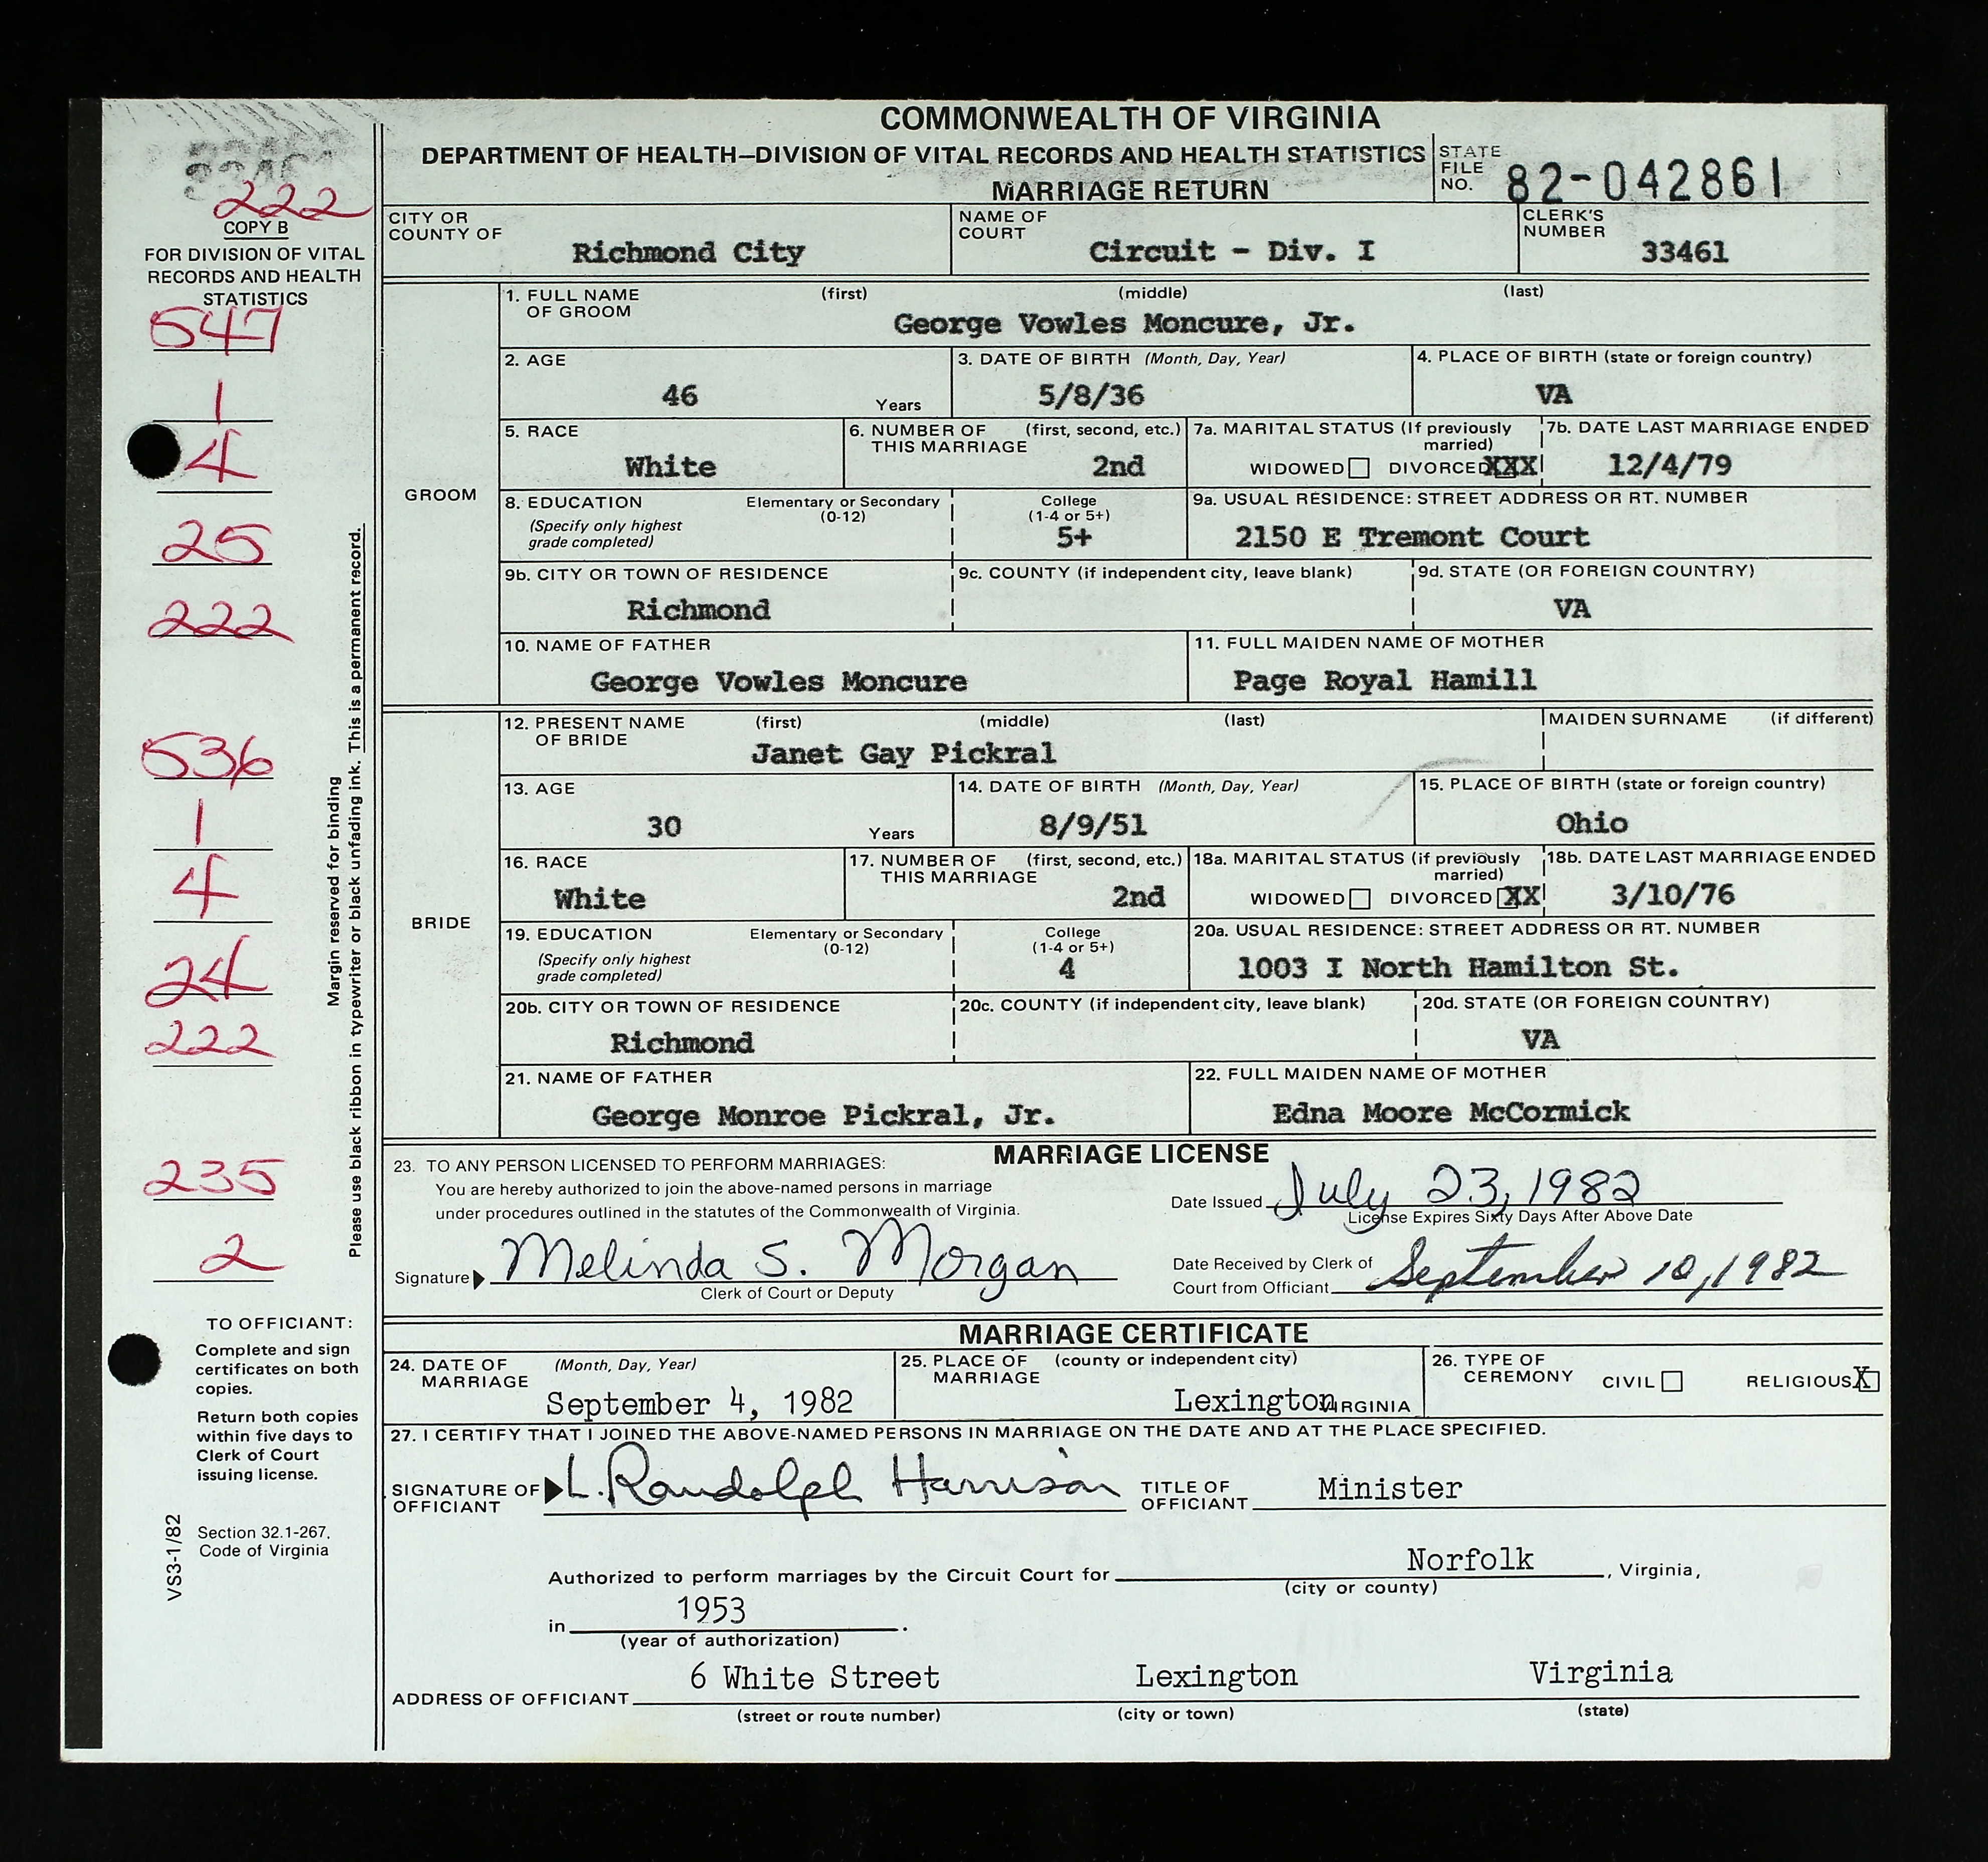 COMMONWEALTH OF VIRGINIA
DEPARTMENT OF HEALTH—DIVISION OF VITAL RECORDS AND HEALTH STATISTICS
MARRIAGE RETURN
STATE FILE NO. 82-042861
222
COPY B
FOR DIVISION OF VITAL
RECORDS AND HEALTH
STATISTICS
CITY OR COUNTY OF Richmond City
NAME OF COURT Circuit - Div. I
CLERK'S NUMBER 33461
GROOM
1. FULL NAME OF GROOM (first) (middle) (last)
George Vowles Moncure, Jr.
2. AGE 46 Years
3. DATE OF BIRTH (Month, Day, Year) 5/8/36
4. PLACE OF BIRTH (state or foreign country) VA
5. RACE White
6. NUMBER OF THIS MARRIAGE (first, second, etc.) 2nd
7a. MARITAL STATUS (If previously married) WIDOWED DIVORCED XXX
7b. DATE LAST MARRIAGE ENDED 12/4/79
8. EDUCATION (Specify only highest grade completed) Elementary or Secondary (0-12) College (1-4 or 5+) 5+
9a. USUAL RESIDENCE: STREET ADDRESS OR RT. NUMBER 2150 E Tremont Court
9b. CITY OR TOWN OF RESIDENCE Richmond
9c. COUNTY (if independent city, leave blank)
9d. STATE (OR FOREIGN COUNTRY) VA
10. NAME OF FATHER George Vowles Moncure
11. FULL MAIDEN NAME OF MOTHER Page Royal Hamill
BRIDE
12. PRESENT NAME OF BRIDE (first) (middle) (last) Janet Gay Pickral
MAIDEN SURNAME (if different)
13. AGE 30 Years
14. DATE OF BIRTH (Month, Day, Year) 8/9/51
15. PLACE OF BIRTH (state or foreign country) Ohio
16. RACE White
17. NUMBER OF THIS MARRIAGE (first, second, etc.) 2nd
18a. MARITAL STATUS (if previously married) WIDOWED DIVORCED XX
18b. DATE LAST MARRIAGE ENDED 3/10/76
19. EDUCATION (Specify only highest grade completed) Elementary or Secondary (0-12) College (1-4 or 5+) 4
20a. USUAL RESIDENCE: STREET ADDRESS OR RT. NUMBER 1003 I North Hamilton St.
20b. CITY OR TOWN OF RESIDENCE Richmond
20c. COUNTY (if independent city, leave blank)
20d. STATE (OR FOREIGN COUNTRY) VA
21. NAME OF FATHER George Monroe Pickral, Jr.
22. FULL MAIDEN NAME OF MOTHER Edna Moore McCormick
547
1
4
25
222
536
1
4
24
222
235
2
Margin reserved for binding
Please use black ribbon in typewriter or black unfading ink. This is a permanent record.
MARRIAGE LICENSE
23. TO ANY PERSON LICENSED TO PERFORM MARRIAGES:
You are hereby authorized to join the above-named persons in marriage
under procedures outlined in the statutes of the Commonwealth of Virginia.
Date Issued July 23, 1982
License Expires Sixty Days After Above Date
Signature Melinda S. Morgan
Clerk of Court or Deputy
Date Received by Clerk of
Court from Officiant September 10, 1982
MARRIAGE CERTIFICATE
24. DATE OF MARRIAGE (Month, Day, Year) September 4, 1982
25. PLACE OF MARRIAGE (county or independent city) Lexington VIRGINIA
26. TYPE OF CEREMONY CIVIL RELIGIOUS X
27. I CERTIFY THAT I JOINED THE ABOVE-NAMED PERSONS IN MARRIAGE ON THE DATE AND AT THE PLACE SPECIFIED.
SIGNATURE OF OFFICIANT L. Randolph Harrison
TITLE OF OFFICIANT Minister
Authorized to perform marriages by the Circuit Court for Norfolk, Virginia,
(city or county)
in 1953.
(year of authorization)
ADDRESS OF OFFICIANT 6 White Street Lexington Virginia
(street or route number) (city or town) (state)
TO OFFICIANT:
Complete and sign
certificates on both
copies.
Return both copies
within five days to
Clerk of Court
issuing license.
Section 32.1-267,
Code of Virginia
VS3-1/82